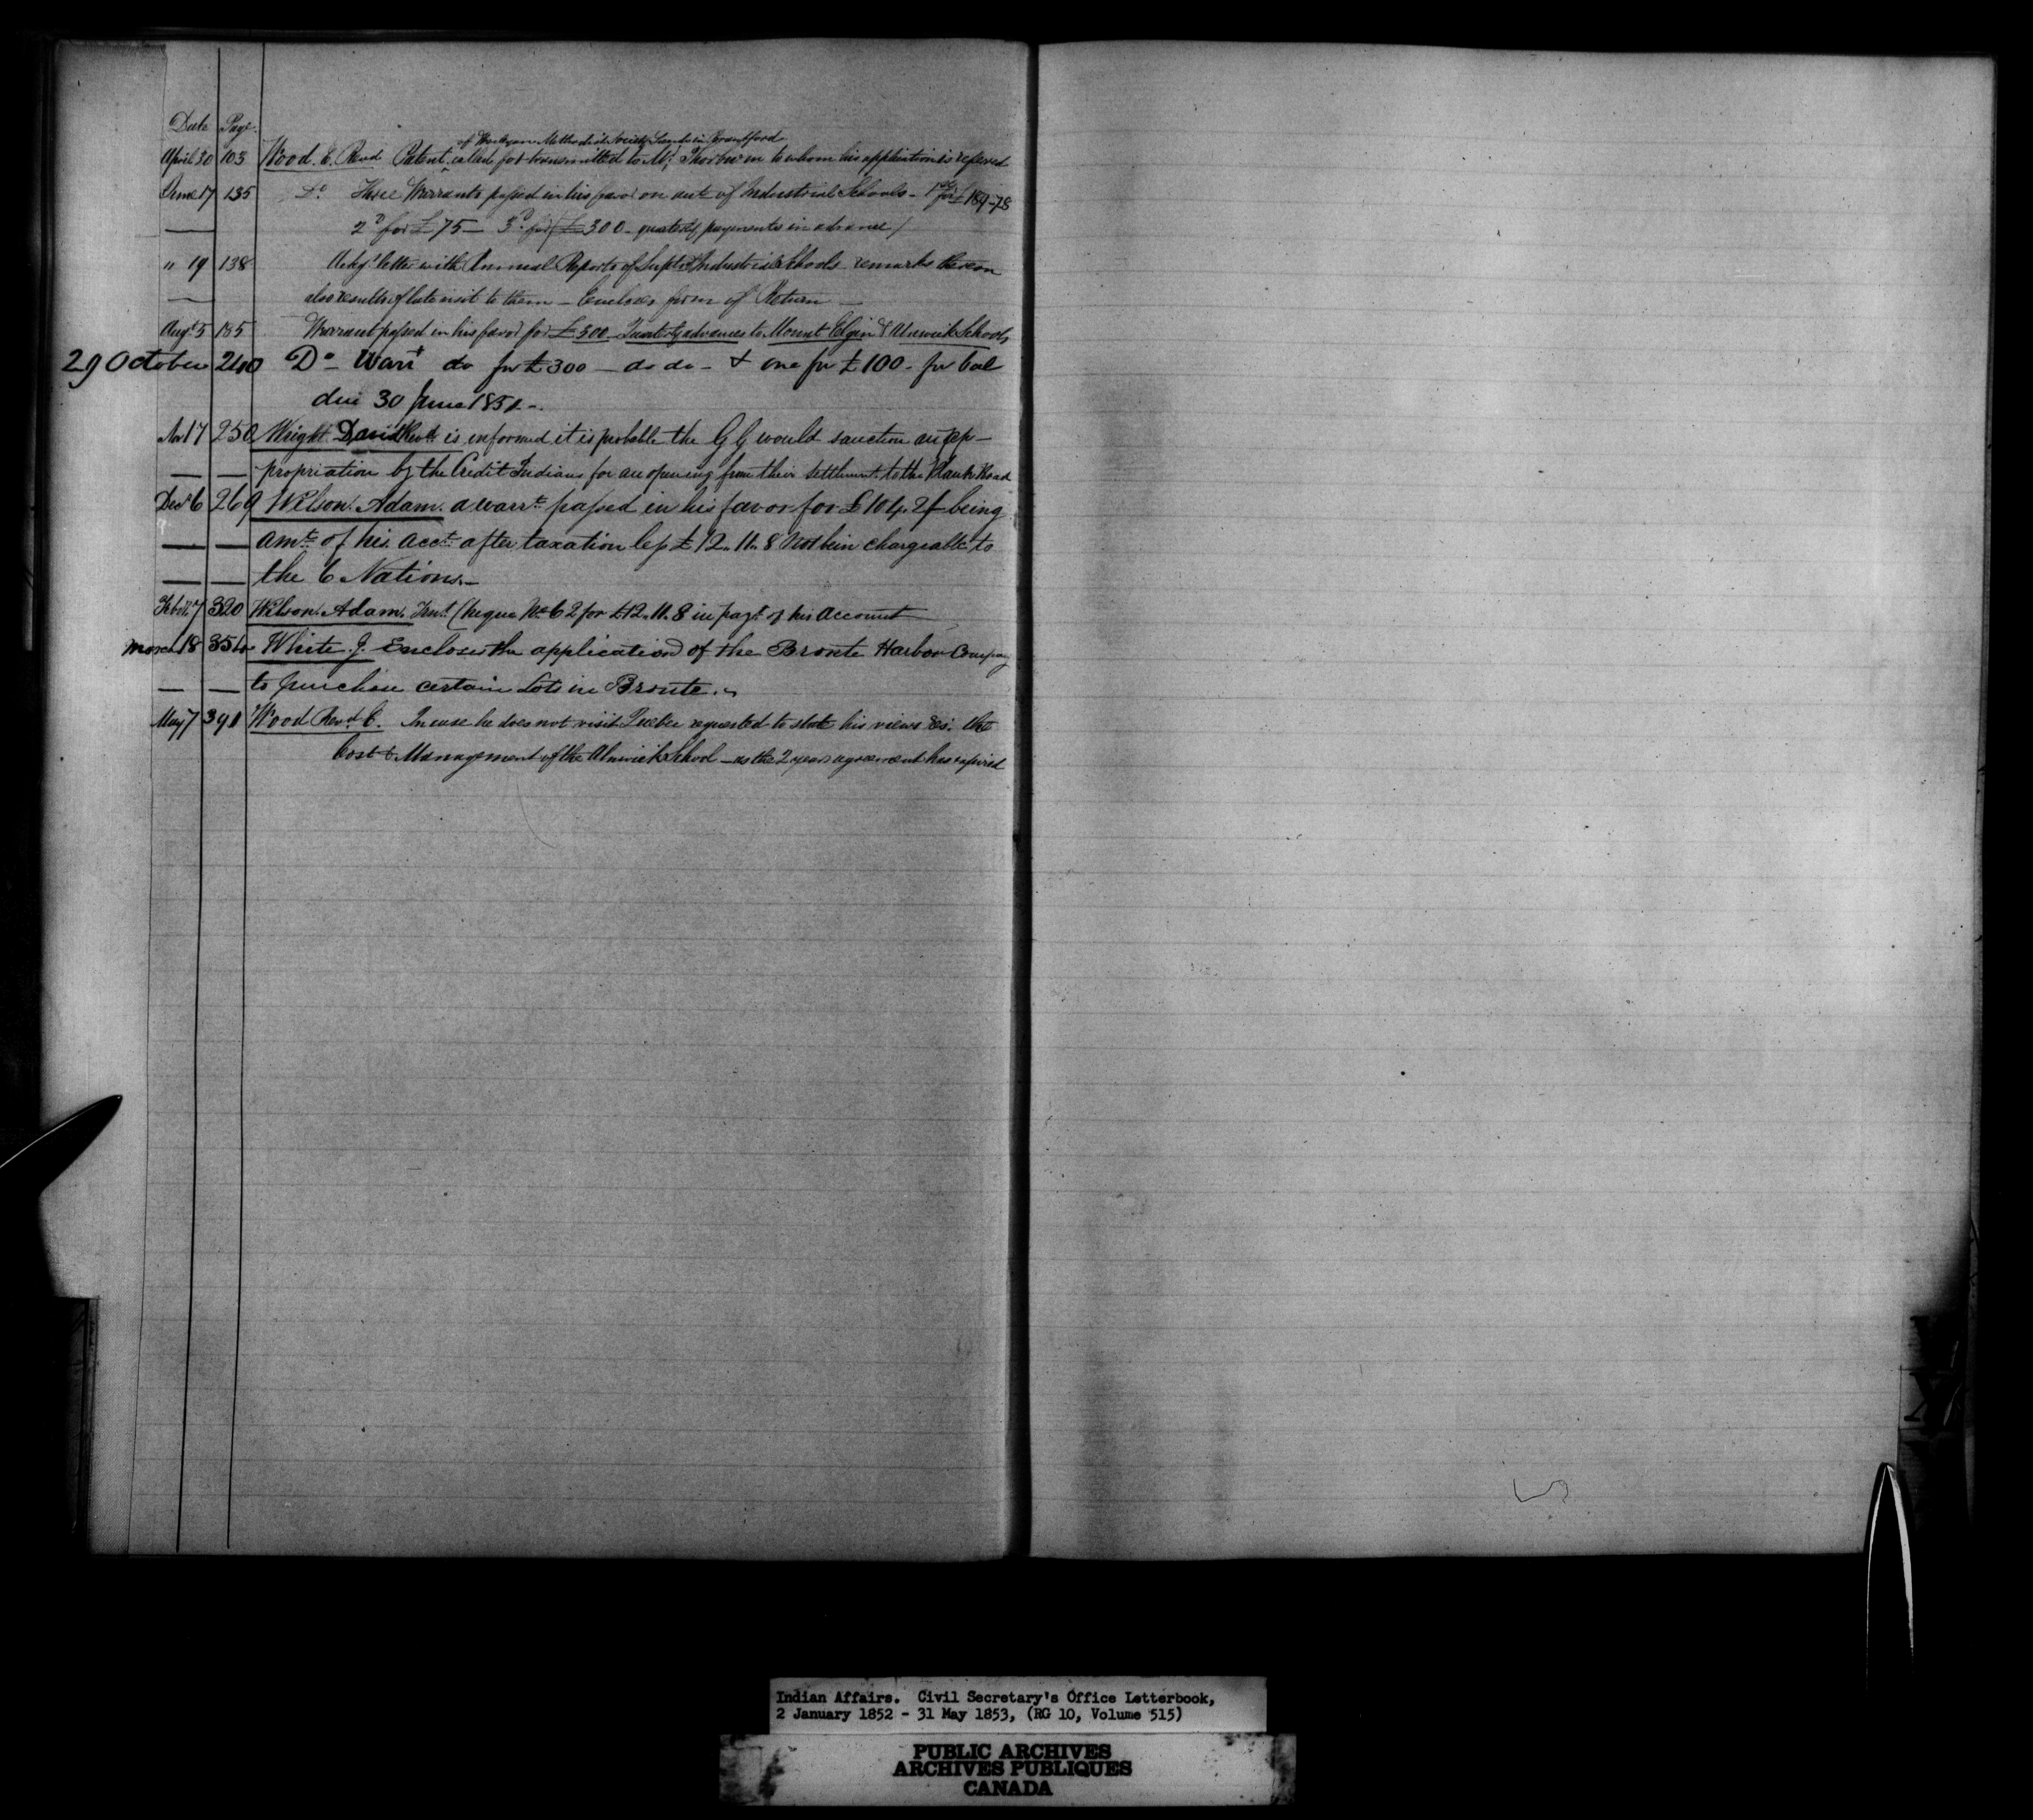 Date Page.
of Wesleyan Methodist Society Lands in Brantford
April 30 103 Wood. E. Revd Patent called for transmitted to Mr Thorburn to whom his application is refered
June 17 135 Do Three Warrants passed in his favor on acct of Industrial Schools - 1st for £189-7.8
2d for £75 — 3d for £300 - quarterly payments in advance /
" 19 138 Ackg letter with Annual Reports of Supt Industrial Schools remarks thereon
also results of late visit to them — Encloses form of Return —
Augt 5 185 Warrant passed in his favor for £300 Quarterly advances to Mount Elgin & Alnwick Schools
29 October 240 Do - Warrt do for £300 — do do - & one for £100 - for bal
due 30 June 185
Nov 17 250 Wright David Revd is informed it is probable the G G would sanction an ap-
— — propriation by the Credit Indians for an opening from their Settlement to the Plank Road
Decr 6 269 Wilson. Adam. a warrt passed in his favor for £104. being
— — amt of his acct after taxation less £12.11.8 Not bein chargeable to
— — the 6 Nations.—
Feb 7 320 Wilson. Adam. Cheque No 62 for £12.11.8 in payt of his Account
March 18 White. J. Encloses the application of the Bronte Harbour Company
— — to purchase certain Lots in Bronte.
May 7 391 Wood Revd E. In case he does not visit Quebec requested to state his views res. the
Cost & Management of the Alnwick School — as the 2 years agreement has expired
Indian Affairs. Civil Secretary's Office Letterbook,
2 January 1852 - 31 May 1853, (RG 10, Volume 515)
PUBLIC ARCHIVES
ARCHIVES PUBLIQUES
CANADA